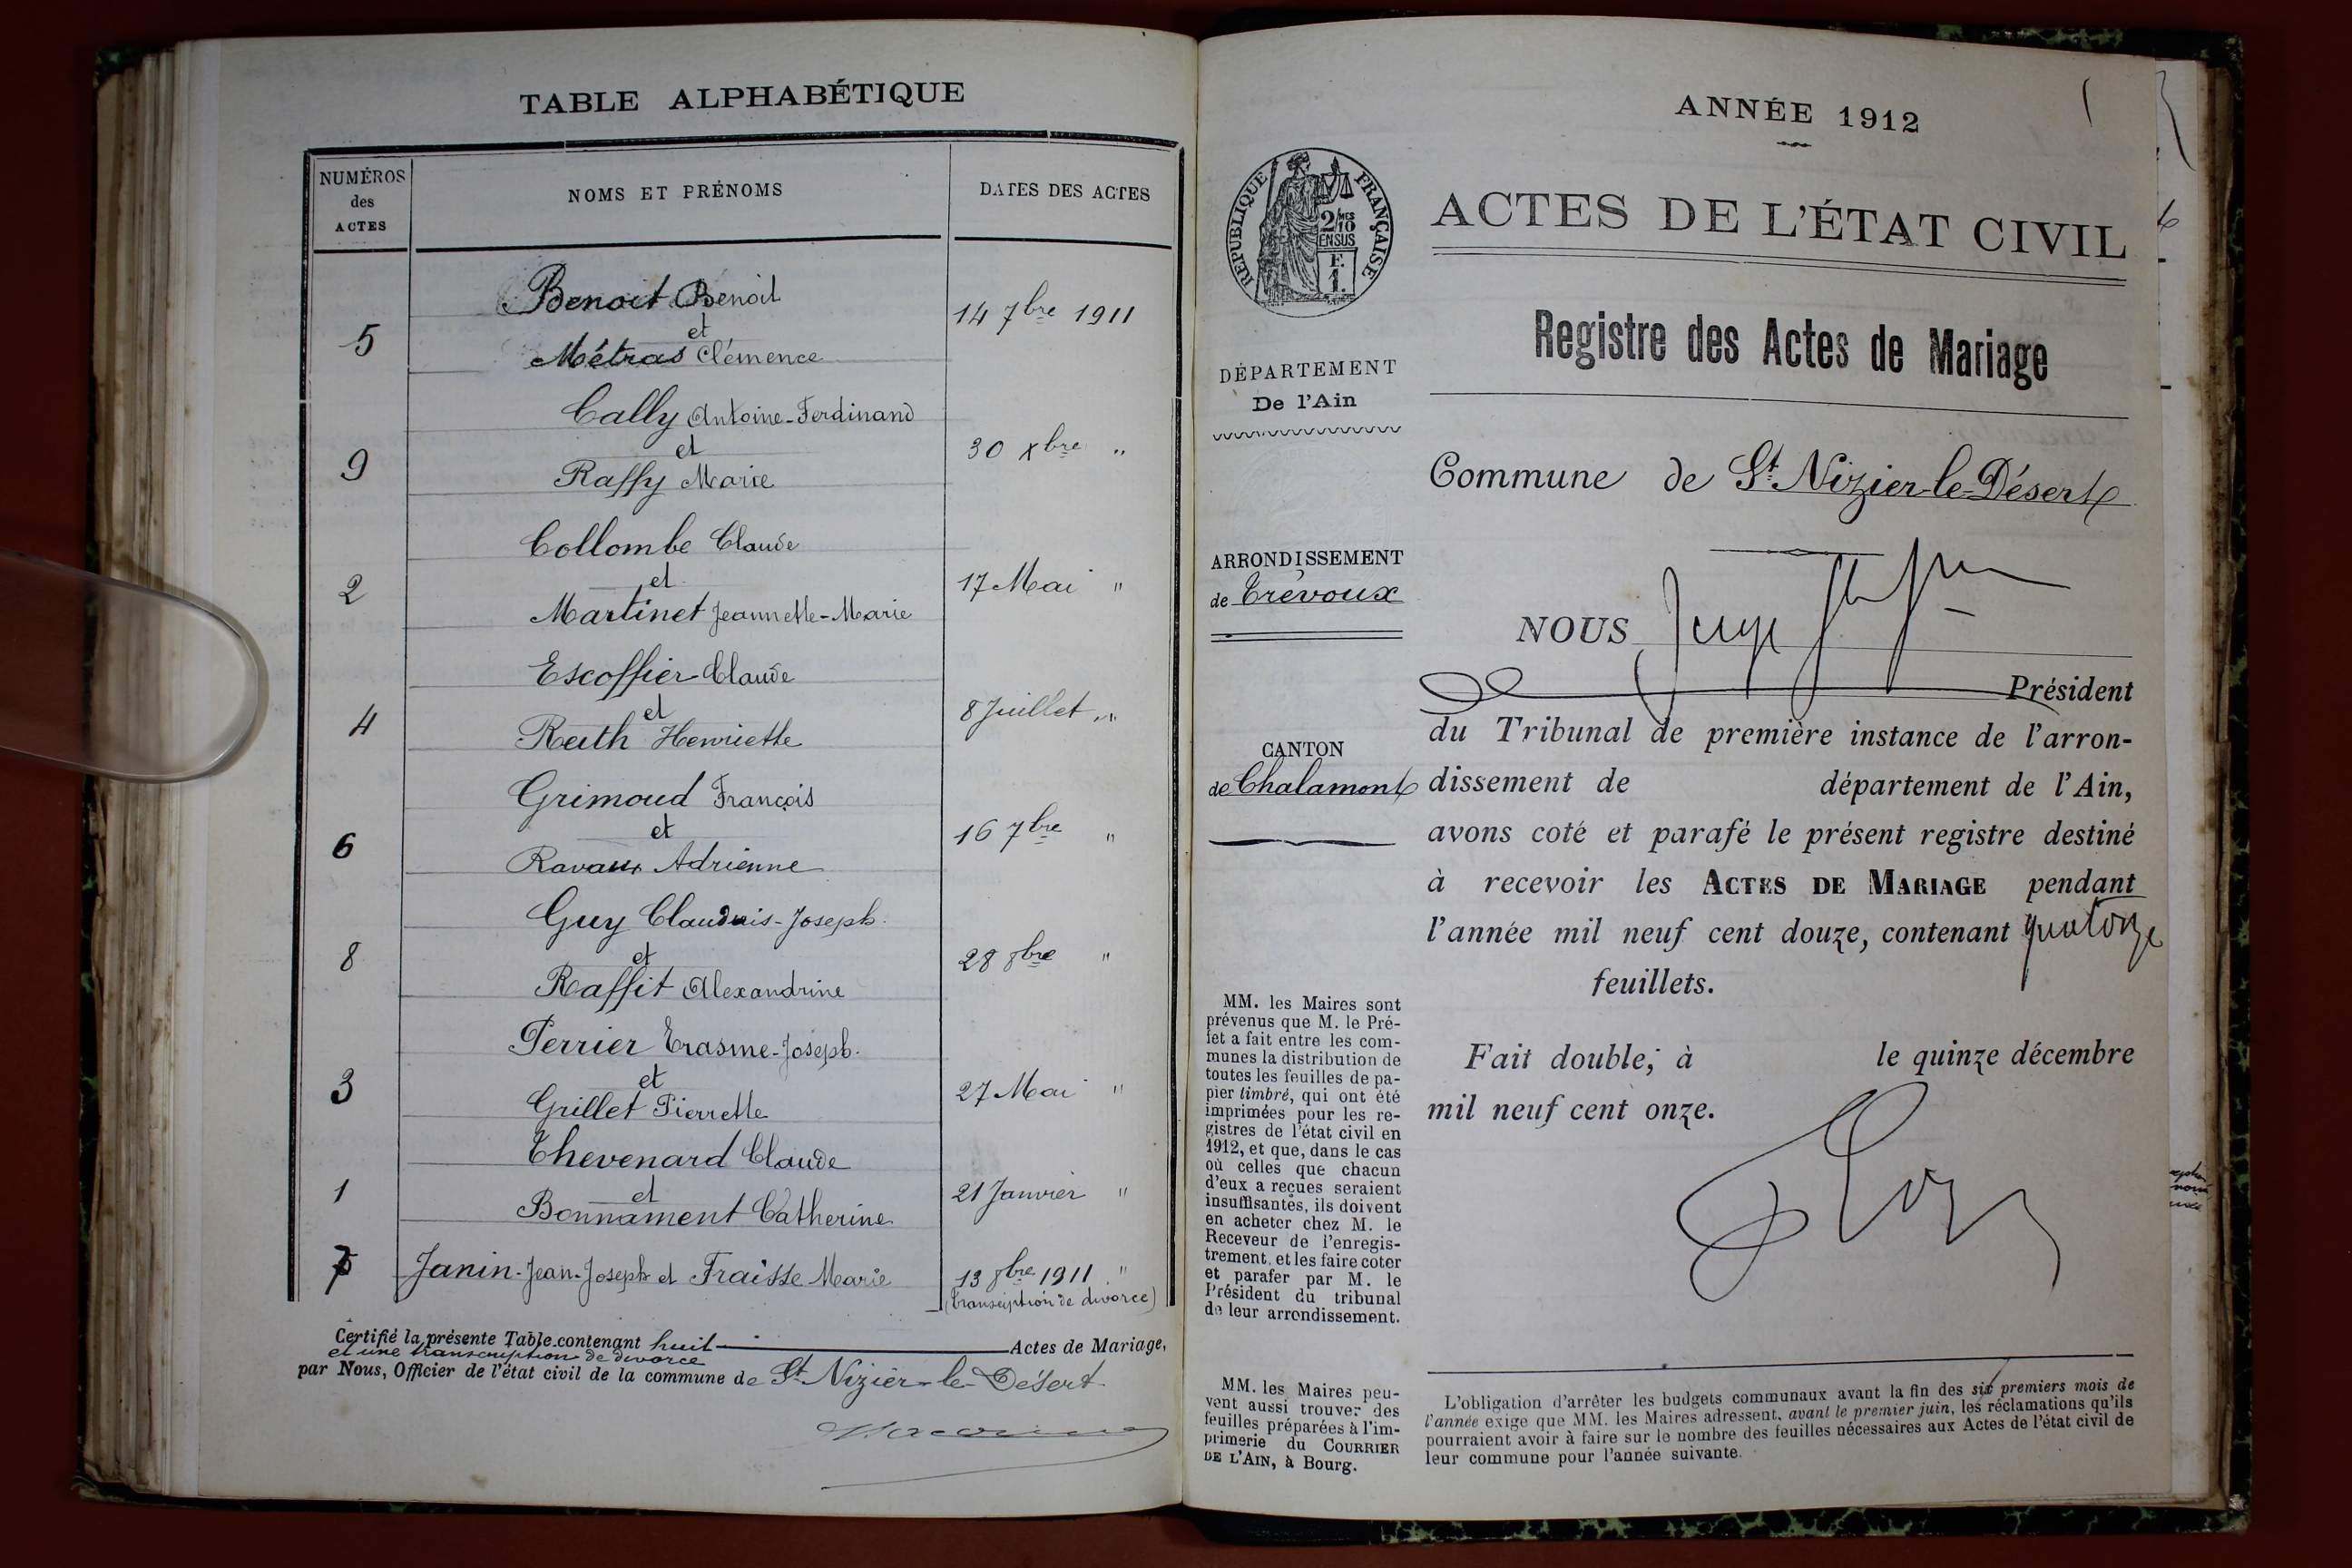 TABLE ALPHABÉTIQUE
NUMÉROS
des
ACTES
NOMS ET PRÉNOMS
DATES DES ACTES
Benoit Benoit
et
5
14 7bre 1911
Métras Clémence
Cally Antoine-Ferdinand
et
9
30 xbre "
Raffy Marie
Collombe Claude
et
2
17 Mai "
Martinet Jeannette-Marie
Escoffier Claude
et
4
8 Juillet "
Reith Henriette
Grimoud François
et
6
16 7bre "
Ravaux Adrienne
Guy Claudius-Joseph
et
8
28 8bre "
Raffit Alexandrine
Perrier Erasme-Joseph
et
3
27 Mai "
Grillet Pierrette
Thevenard Claude
et
1
21 Janvier "
Bonnament Catherine
7
Janin-Jean-Joseph et Fraisse Marie
13 8bre 1911 "
(transcription de divorce)
Certifié la présente Table contenant huit Actes de Mariage,
et une transcription de divorce
par Nous, Officier de l'état civil de la commune de St Nizier-le-Désert
ANNÉE 1912
RÉPUBLIQUE FRANÇAISE
2/10MES
EN SUS
F.
1.
ACTES DE L'ÉTAT CIVIL
Registre des Actes de Mariage
DÉPARTEMENT
De l'Ain
Commune de St Nizier-le-Désert
ARRONDISSEMENT
de Trévoux
CANTON
de Chalamont
NOUS Juge
Président
du Tribunal de première instance de l'arron-
dissement de département de l'Ain,
avons coté et parafé le présent registre destiné
à recevoir les ACTES DE MARIAGE pendant
l'année mil neuf cent douze, contenant quatorze
feuillets.
Fait double, à le quinze décembre
mil neuf cent onze.
MM. les Maires sont
prévenus que M. le Pré-
fet a fait entre les com-
munes la distribution de
toutes les feuilles de pa-
pier timbré, qui ont été
imprimées pour les re-
gistres de l'état civil en
1912, et que, dans le cas
où celles que chacun
d'eux a reçues seraient
insuffisantes, ils doivent
en acheter chez M. le
Receveur de l'enregis-
trement, et les faire coter
et parafer par M. le
Président du tribunal
de leur arrondissement.
MM. les Maires peu-
vent aussi trouver des
feuilles préparées à l'im-
primerie du COURRIER
DE L'AIN, à Bourg.
L'obligation d'arrêter les budgets communaux avant la fin des six premiers mois de
l'année exige que MM. les Maires adressent, avant le premier juin, les réclamations qu'ils
pourraient avoir à faire sur le nombre des feuilles nécessaires aux Actes de l'état civil de
leur commune pour l'année suivante.